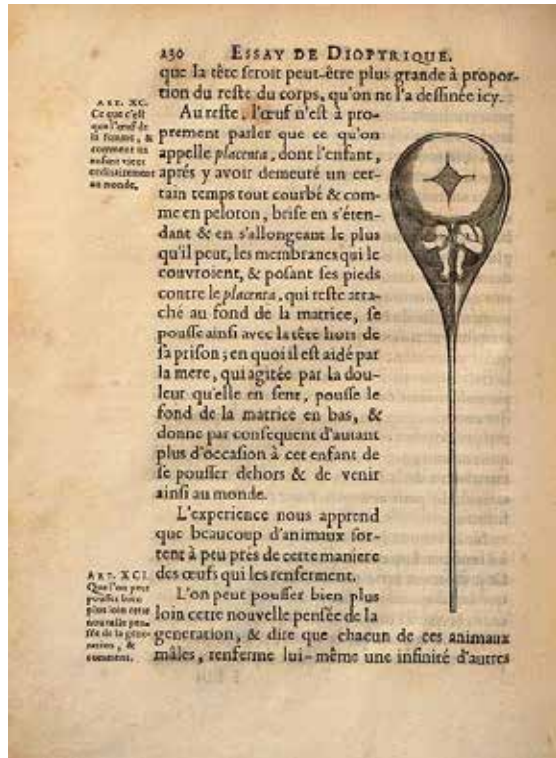 230 ESSAY DE DIOPTRIQUE.
que la tête seroit peut-être plus grande à propor-
tion du reste du corps, qu'on ne l'a dessinée icy.
ART. XC.
Ce que c'est
que l'œuf de
la femme, &
comment un
enfant vient
ordinairement
au monde.
Au reste, l'œuf n'est à pro-
prement parler que ce qu'on
appelle placenta, dont l'enfant,
aprés y avoir demeuré un cer-
tain temps tout courbé & com-
me en peloton, brise en s'éten-
dant & en s'allongeant le plus
qu'il peut, les membranes qui le
couvroient, & posant ses pieds
contre le placenta, qui reste atta-
ché au fond de la matrice, se
pousse ainsi avec la tête hors de
sa prison; en quoi il est aidé par
la mere, qui agitée par la dou-
leur qu'elle en sent, pousse le
fond de la matrice en bas, &
donne par consequent d'autant
plus d'occasion à cet enfant de
se pousser dehors & de venir
ainsi au monde.
L'experience nous apprend
que beaucoup d'animaux sor-
tent à peu prés de cette maniere
des œufs qui les renferment.
ART. XCI.
Que l'on peut
pousser bien
plus loin cette
nouvelle pen-
sée de la gene-
ration, &
comment.
L'on peut pousser bien plus
loin cette nouvelle pensée de la
generation, & dire que chacun de ces animaux
mâles, renferme lui-même une infinité d'autres